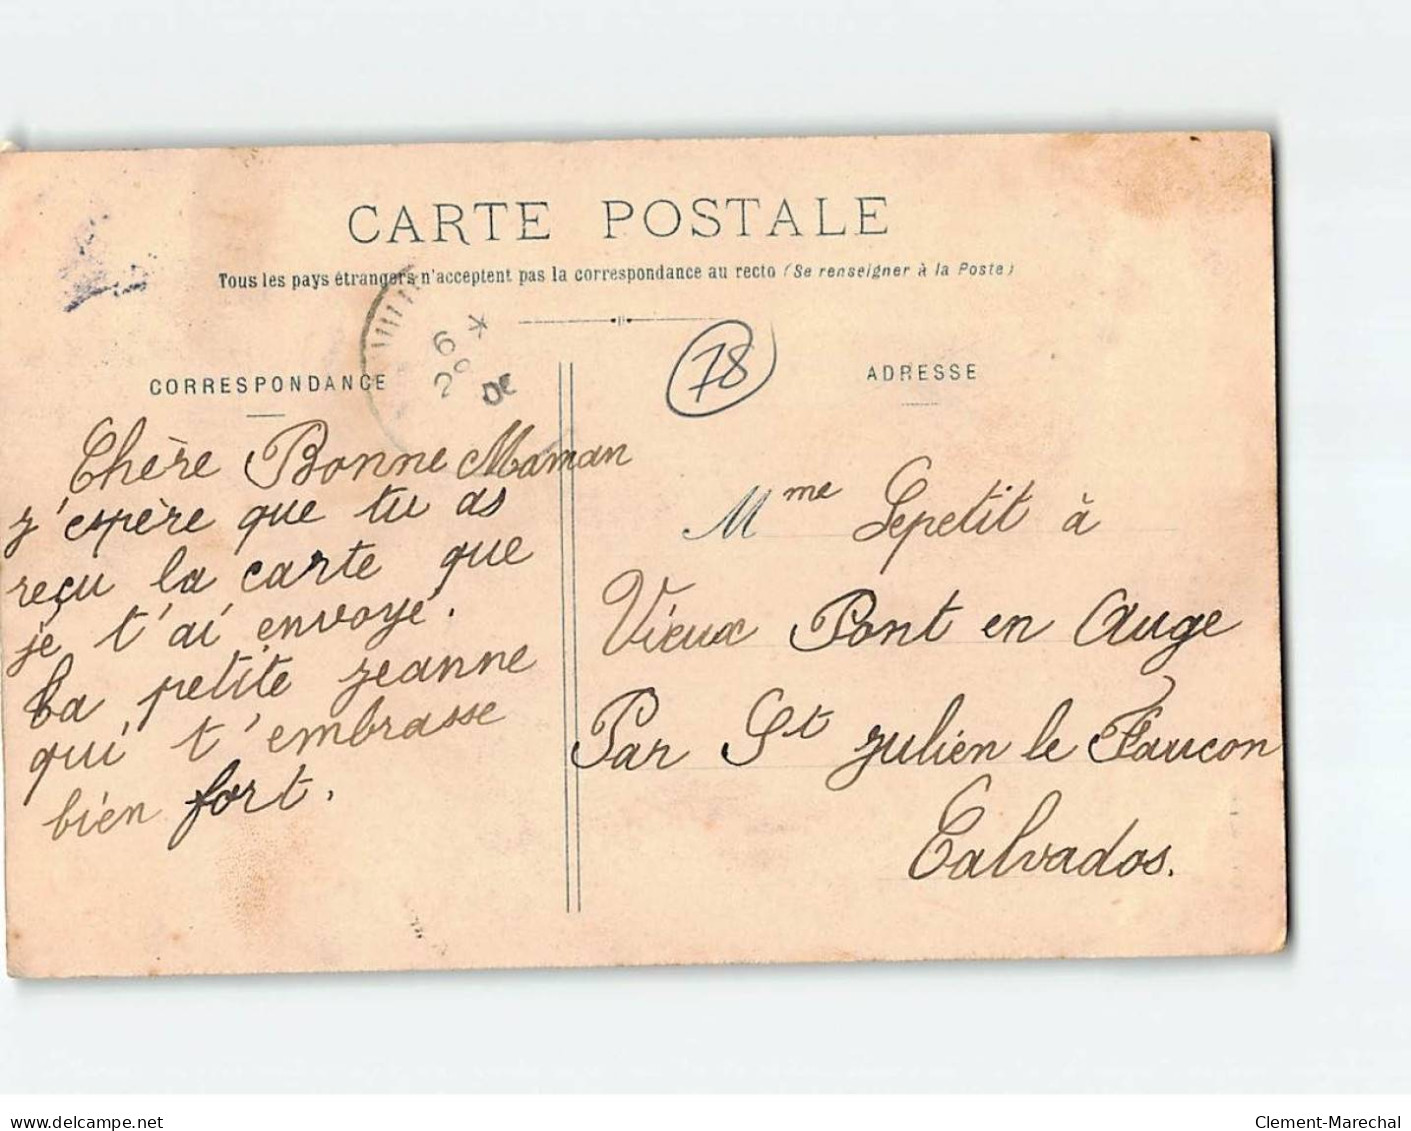 CARTE POSTALE
Tous les pays étrangers n'acceptent pas la correspondance au recto (Se renseigner à la Poste)
6 *
78
CORRESPONDANCE
Chère Bonne Maman
j'espère que tu as
reçu la carte que
je t'ai envoyé.
Ta petite jeanne
qui t'embrasse
bien fort.
ADRESSE
Mme Lepetit à
Vieux Pont en Auge
Par St julien le Faucon
Calvados.
delcampe.net
Clement-Marechal